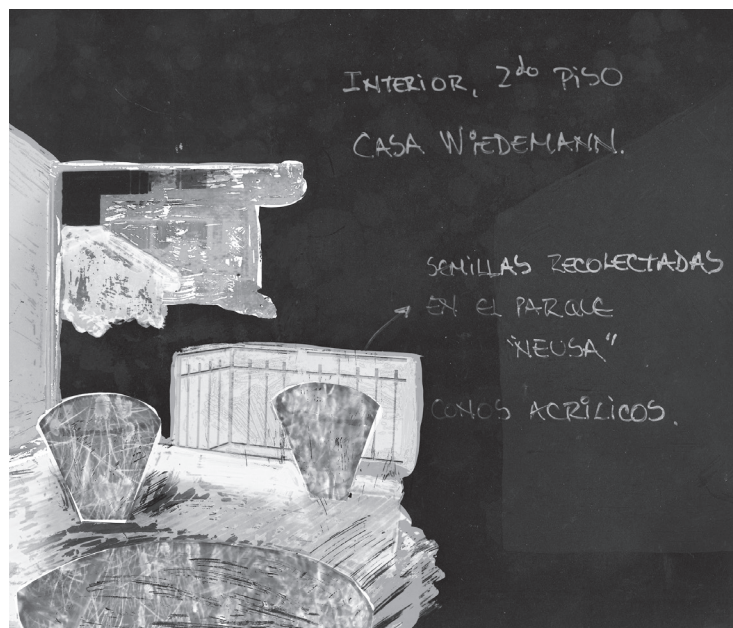 INTERIOR, 2do PISO
CASA WIEDEMANN.
SEMILLAS RECOLECTADAS
EN EL PARQUE
"NEUSA"
CONOS ACRÍLICOS.